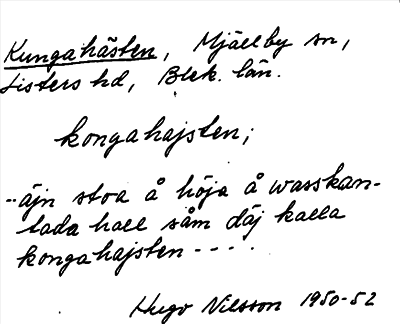 Kungahästen, Mjällby sn,
Listers hd, Blek. län.
kongahajsten;
--äjn stoa å höja å wasskan-
tada hall såm däj kalla
kongahajsten- - - -
Hugo Nilsson 1950-52